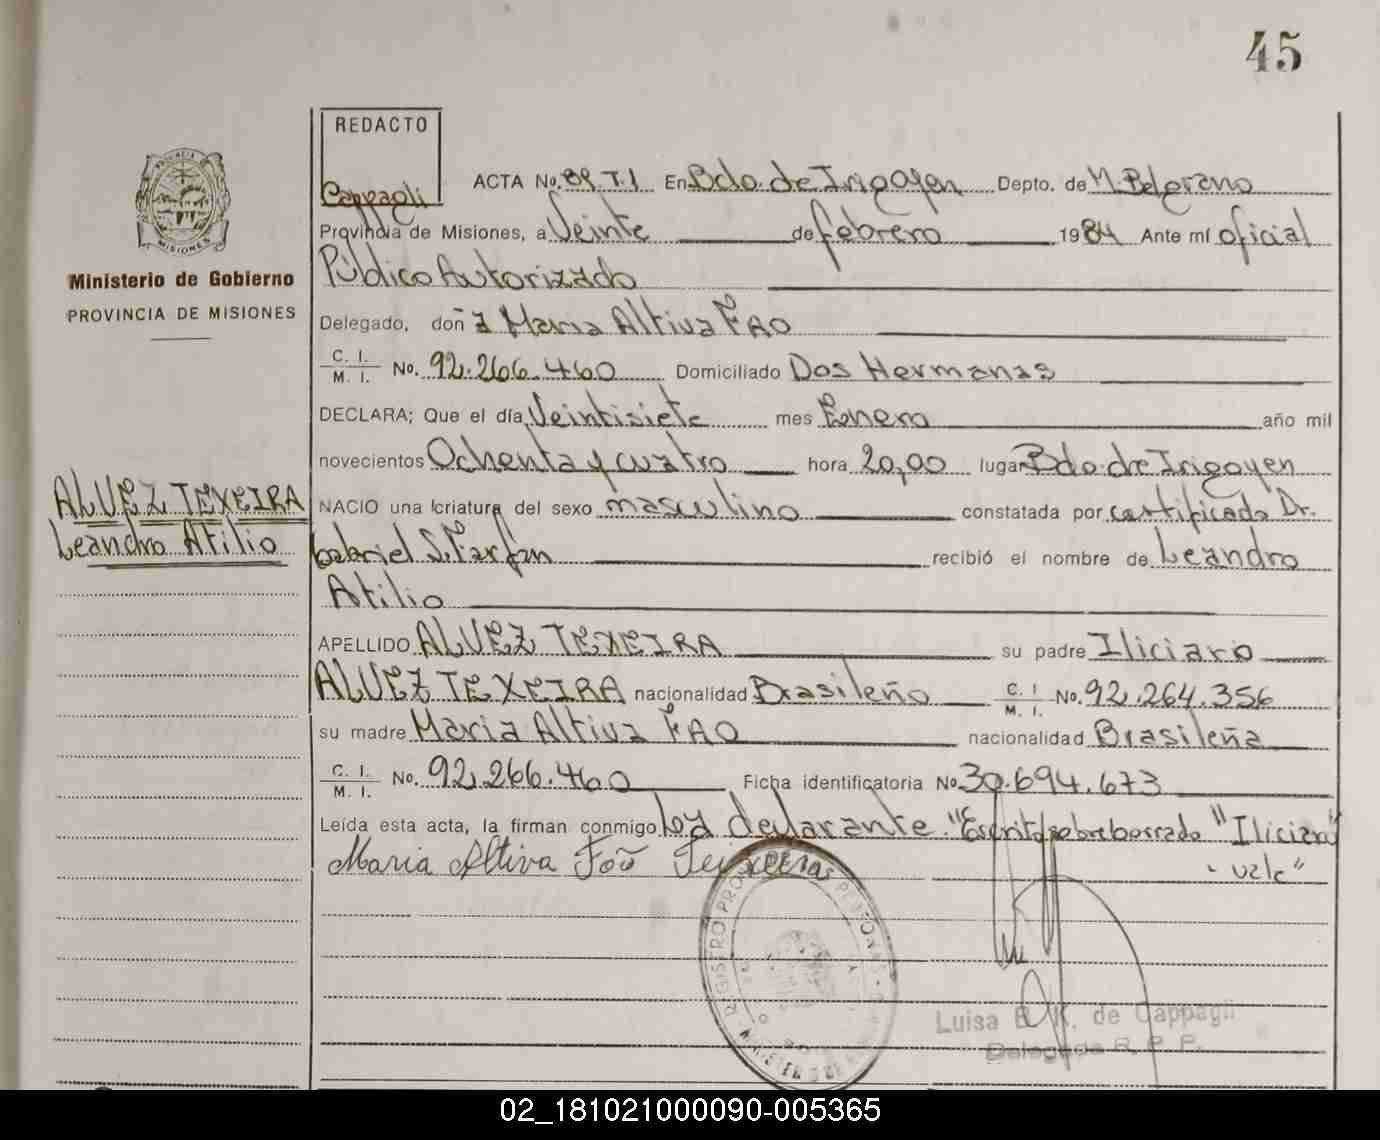 45
REDACTO
Cappagli
ACTA No. 89.T.1 En Bdo. de Irigoyen Depto. de M. Belgrano
Provincia de Misiones, a Veinte de febrero 1984 Ante mí oficial
Público Autorizado
Delegado, doña Maria Altiva FAO
C. I. / M. I. No. 92.266.460 Domiciliado Dos Hermanas
DECLARA; Que el día Veintisiete mes Enero año mil
novecientos Ochenta y cuatro hora 20,00 lugar Bdo. de Irigoyen
NACIO una criatura del sexo masculino constatada por certificado Dr.
Gabriel S. Farfan recibió el nombre de Leandro
Atilio
APELLIDO ALVEZ TEXEIRA su padre Iliciaro
ALVEZ TEXEIRA nacionalidad Brasileño C. I. / M. I. No. 92.264.356
su madre Maria Altiva FAO nacionalidad Brasileña
C. I. / M. I. No. 92.266.460 Ficha identificatoria No. 30.694.673
Leída esta acta, la firman conmigo la declarante. "Escrito sobreborrado "Iliciaro"
Maria Altiva Foõ Teixeiras - vale"
Ministerio de Gobierno
PROVINCIA DE MISIONES
ALVEZ TEXEIRA
Leandro Atilio
Luisa E. K. de Cappagli
Delegada R. P. P.
02_181021000090-005365